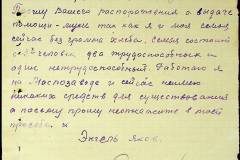 Прошу Вашего распоряжения о выдаче
помощи-муки так как я и моя семья
сейчас без грамма хлеба. Семья состоит
из человек два трудоспособных и
один нетрудоспособный. Работаю я
на Маслозаводе и сейчас неимею
никаких средств для существования
а посему прошу неоткажите в моей
просьбе
Энгель Яков.